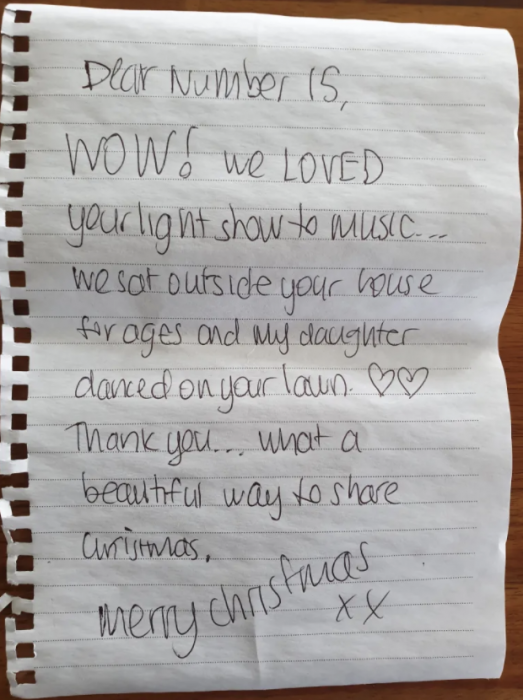 Dear Number 15,
WOW! we LOVED
your light show to music...
we sat outside your house
for ages and my daughter
danced on your lawn. ♡♡
Thank you... what a
beautiful way to share
christmas.
merry christmas
xx